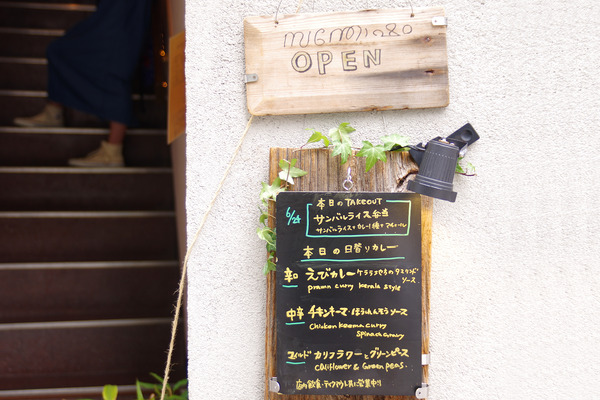 OPEN
6/24
本日のTAKEOUT
サンバルライス弁当
本日の日替りカレー
辛口 えびカレー ケララスタイルの
ソース
prawn curry kerala style
中辛 チキンキーマ・ほうれんそうソース
Chicken keema curry
Spinach gravy
マイルド カリフラワーとグリーンピース
Califlower & Green peas.
店内飲食・テイクアウト共に営業中!!